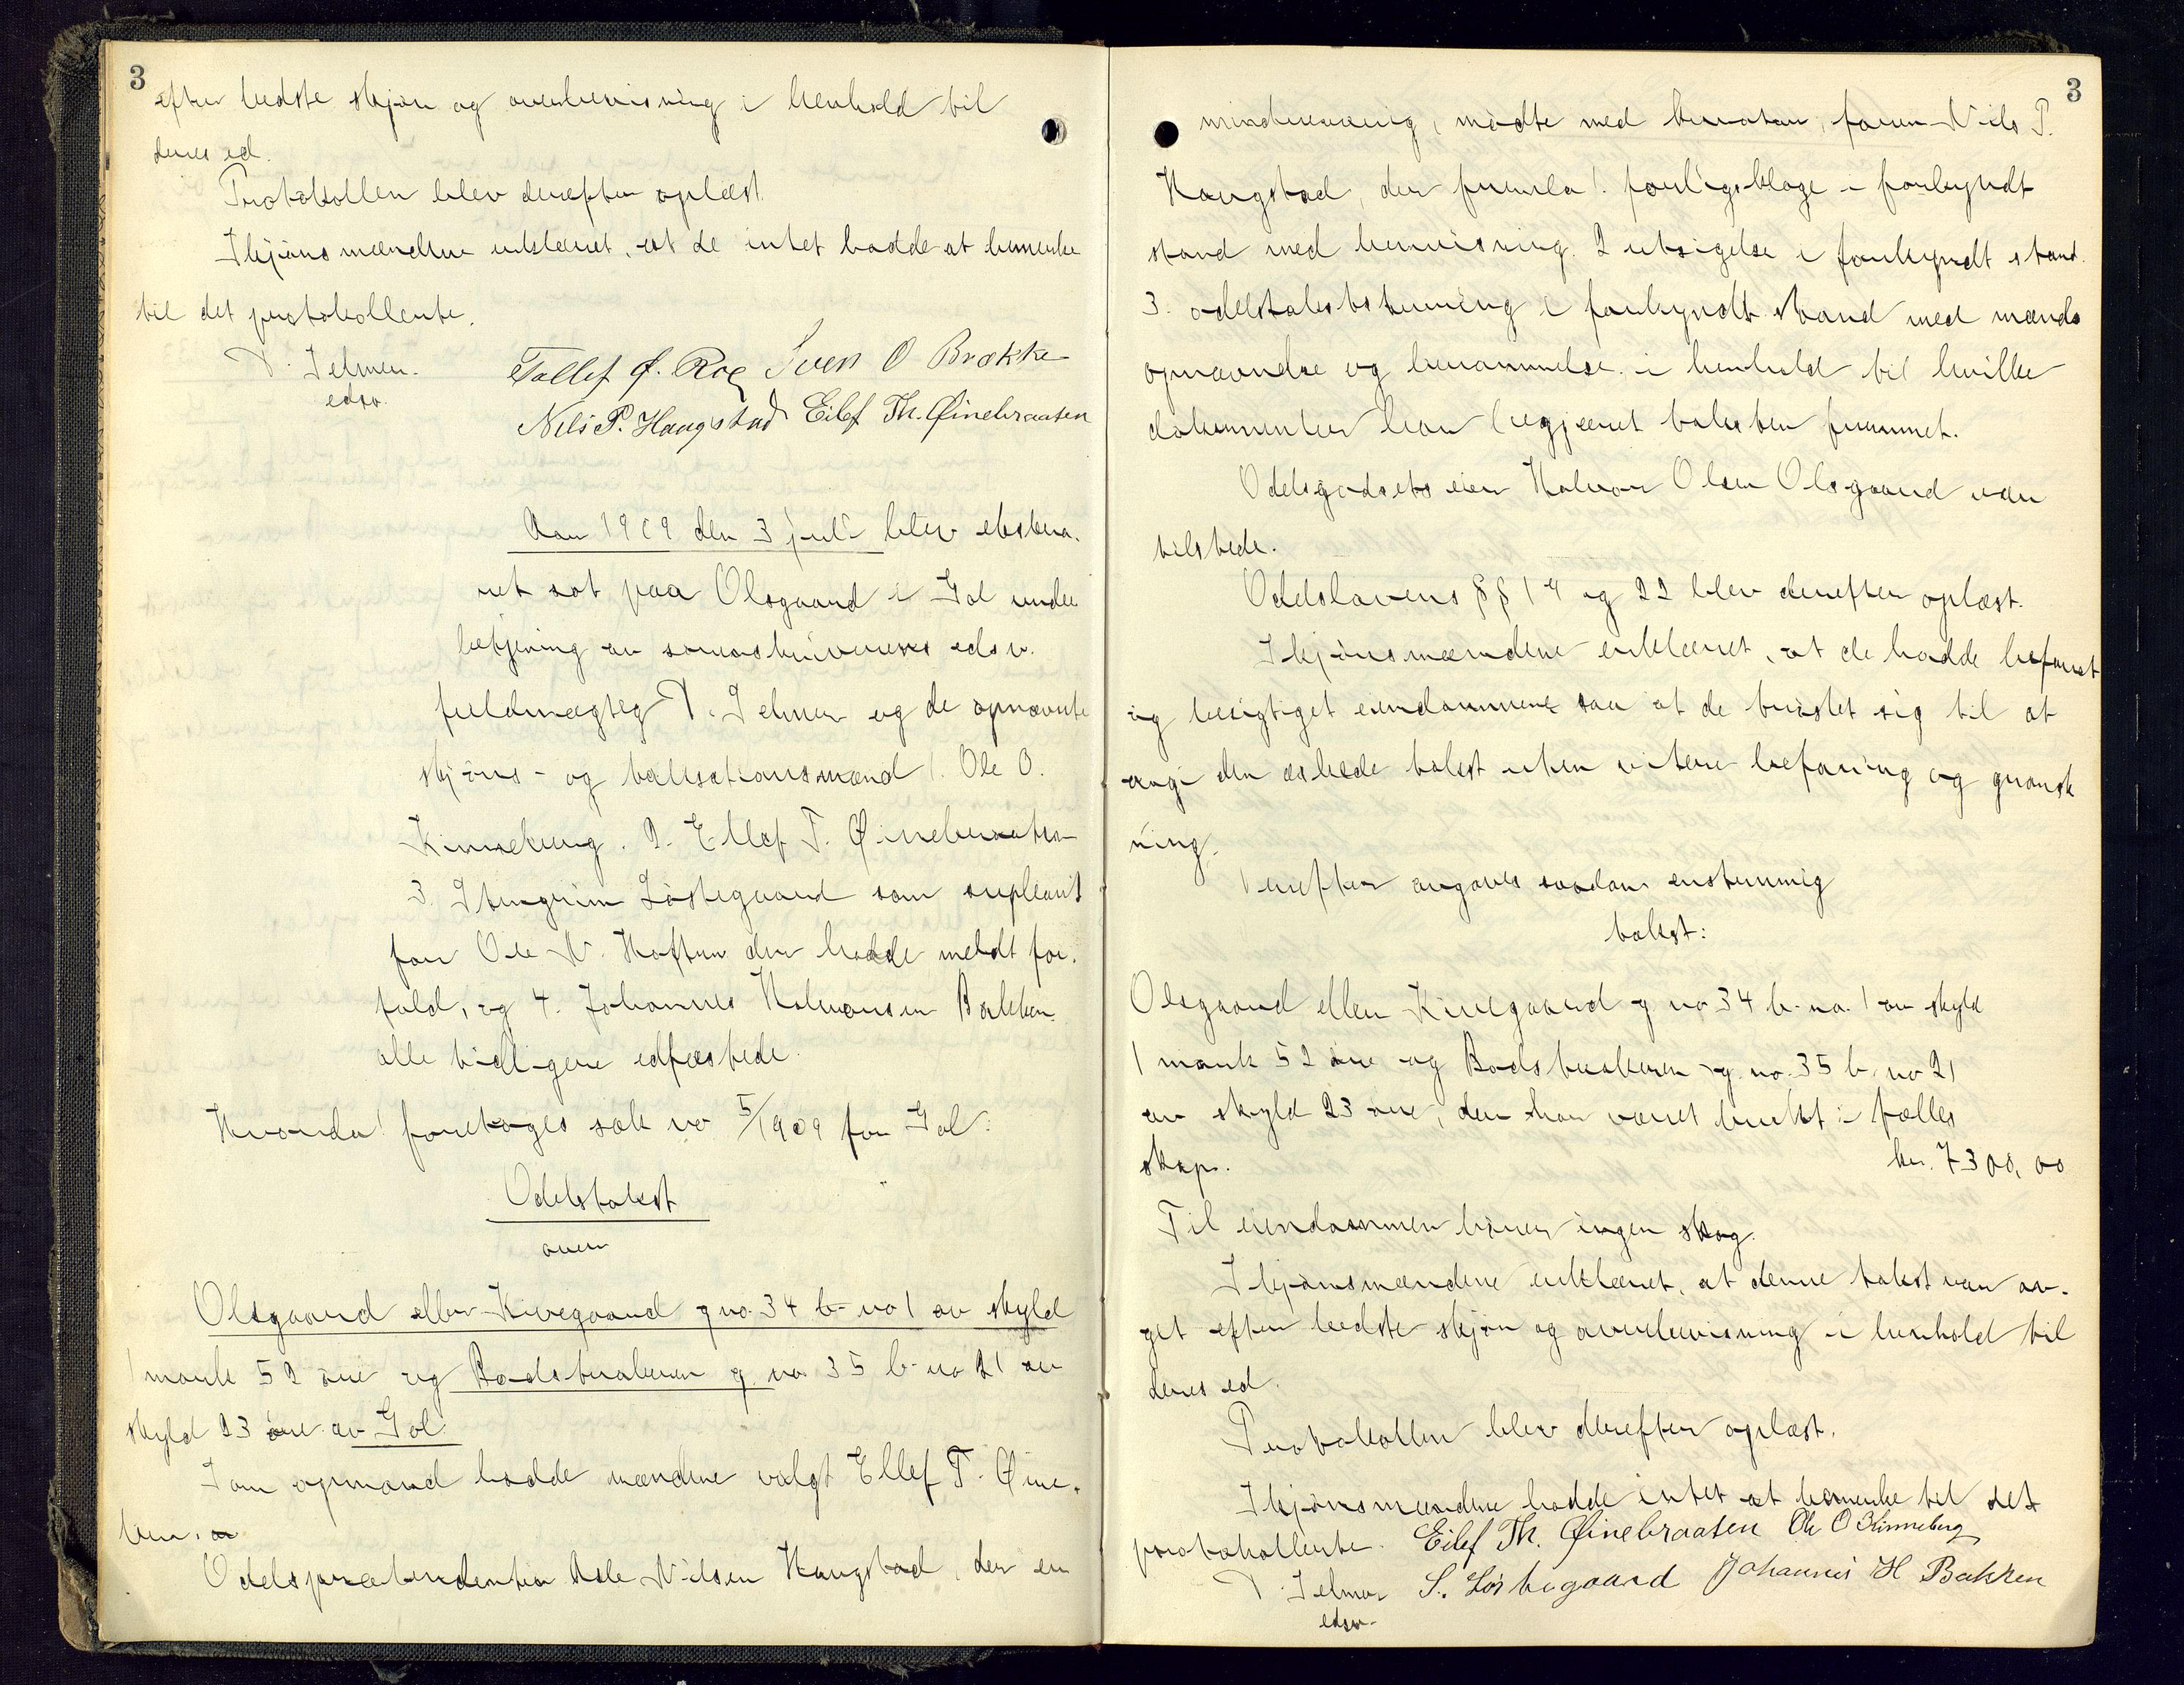 3
efter bedste skjøn og overbevisning i henhold til
deres ed.
Protokollen blev derefter oplæst
Skjønsmændene erklæret, at de intet hadde at bemerke
til det protokollerte.
Jelmer.
edsv.
Tollef Ø. Roe Sven O Brække
Nils P. Haugstad Eilef Th. Øinebraaten
Aar 1909 den 3 juli blev ekstra-
ret sat paa Olsgaard i Gol under
betjening av sorenskriverens edsv.
fuldmægtig Jelmer og de opnævnte
skjøns- og taksationsmænd 1. Ole O.
Kinneberg. 2. Ellef T. Øinebraaten
3. Stengrim Løstegaard som supleant
for Ole N. Hoftun der hadde meldt for-
fald, og 4. Johannes Halvorsen Bakken
alle tidligere edfæstede.
Hvorda! foretages sak no 5/1909 for Gol:
Odelstakst
over
Olsgaard eller Kivegaard g no. 34 b-no 1 av skyld
1 mark 52 øre og Bodsbraaten g no 35 b-no 21 av
skyld 23 øre av Gol.
Som opmand hadde mændene valgt Ellef T. Øine-
bra.
Odelsprætendenten Asle Nilsen Haugstad, der er
3
mindreaarig, mødte med kurator, faren Nils P.
Haugstad, der fremla 1. forligsklage i forkyndt
stand med henvisning. 2 utsigelse i forkyndt stand.
3. odelstakststevning i forkyndt stand med mænds
opnævnelse og berammelse i henhold til hvilke
dokumenter han begjæret taksten fremmet.
Odelsgodsets eier Halvor Olsen Olsgaard var
tilstede.
Odelslovens §§ 14 og 22 blev derefter oplæst.
Skjønsmændene erklæret, at de hadde befaret
og besigtiget eiendommene saa at de trøstet sig til at
avgi den æskede takst uten videre befaring og gransk
ning.
Derefter avgaves saadan enstemmig
takst:
Olsgaard eller Kivegaard g no 34 b-no. 1 av skyld
1 mark 52 øre og Bodsbraaten g. no. 35 b. no 21
av skyld 23 øre, der har været brukt i fælles
skap. kr. 7300,00
Til eiendommen hører ingen skog.
Skjønsmændene erklæret, at denne takst var av-
git efter bedste skjøn og overbevisning i henhold til
deres ed.
Protokollen blev derefter oplæst.
Skjønsmændene hadde intet at bemerke til det
protokollerte. Eilef Th. Øinebraaten Ole O Kinneberg
Jelmer S. Løstegaard Johannes H Bakken
edsv.